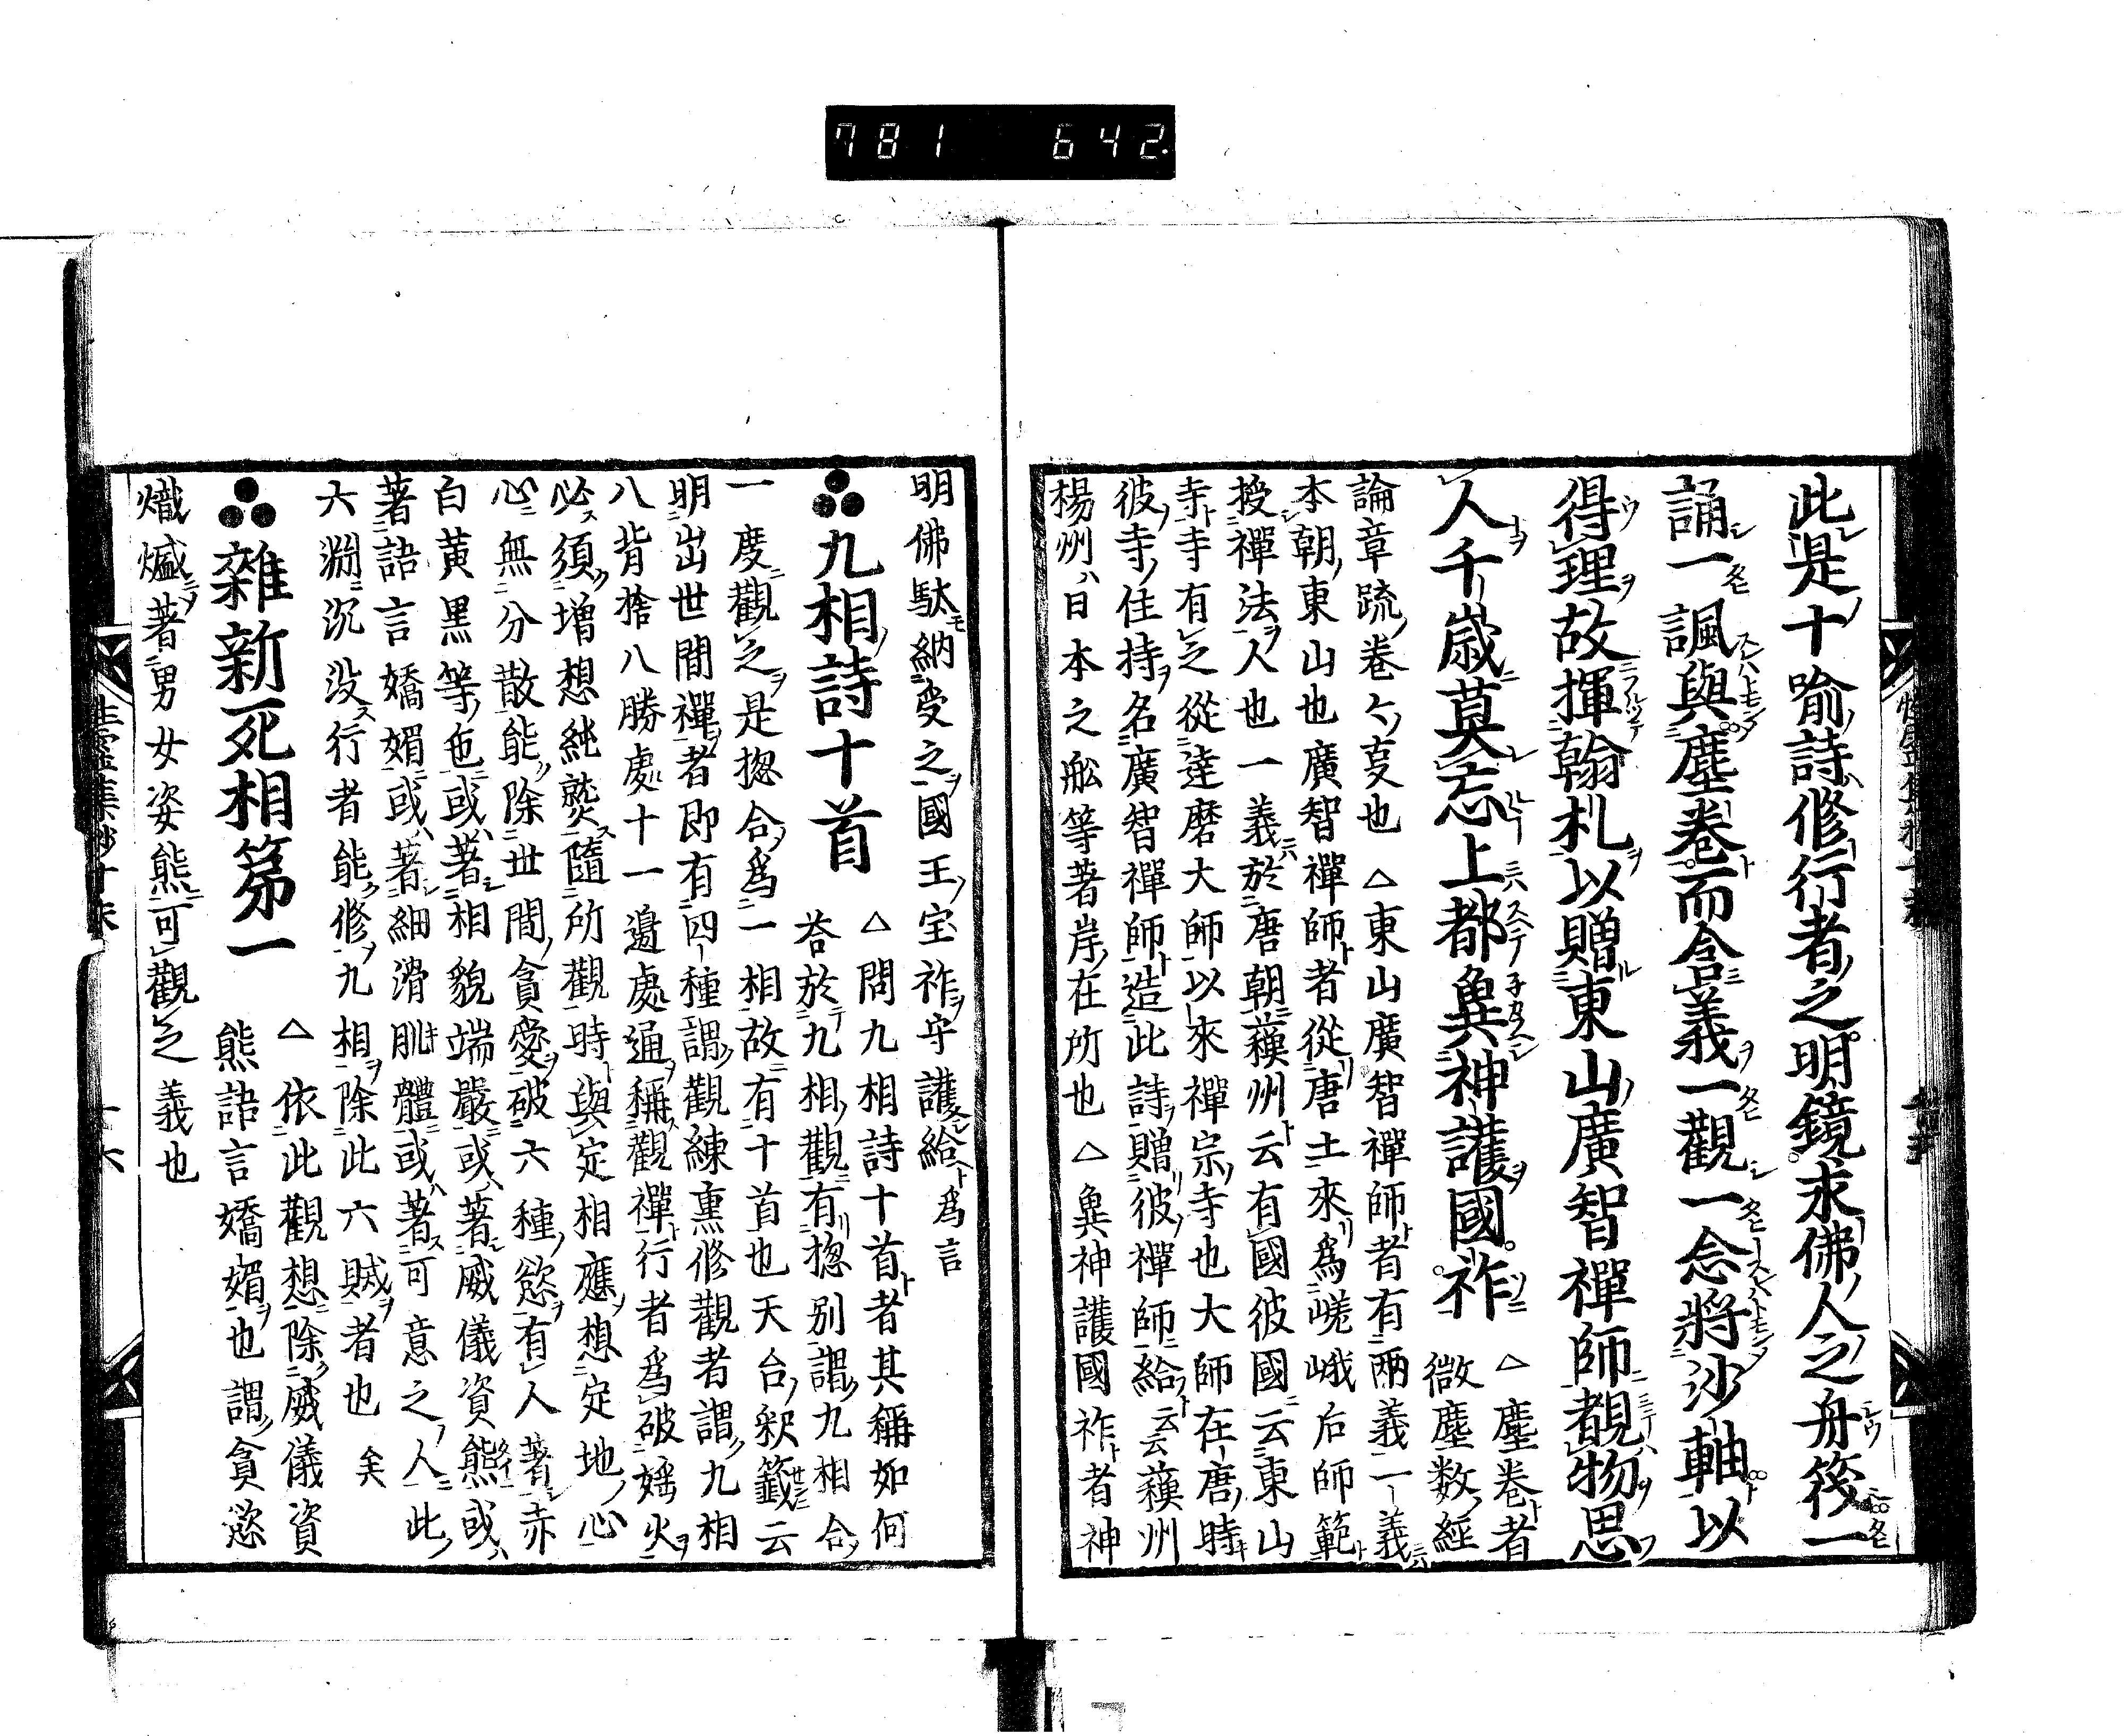 781 642
此是十喻詩修行者之明鏡求佛人之舟筏一
誦一諷與塵卷而含義一觀一念將沙軸以
得理故揮翰札以贈東山廣智禪師覩物思
人千歲莫忘上都䰠神護國祚
△塵卷者
微塵数經
論章疏卷々叓也△東山廣智禪師者有兩義一義
本朝東山也廣智禪師者從唐土來爲嵯峨后師範
授禪法人也一義於唐朝蘓州云有國彼國云東山
寺寺有之從達磨大師以來禪宗寺也大師在唐時
彼寺住持名廣智禪師造此詩贈彼禪師給云云蘓州
楊州日本之舩等著岸在所也△䰠神護國祚者神
明佛馱納受之國王宝祚守護給爲言
九相詩十首
△問九相詩十首者其稱如何
荅於九相觀有揔别謂九相合
一度觀之是揔合爲一相故有十首也天台釈籤云
明出世間禪者即有四種謂觀練熏修觀者謂九相
八背捨八勝處十一邊處通稱觀禪行者爲破婬火
必須増想純熟隨所觀時與定相應想定地心
心無分散能除世間貪愛破六種慾有人著赤
白黄黑等色或著相貌端嚴或著威儀資熊或
著語言嬌媚或著細滑肌體或著可意之人此
六淵沉没行者能修九相除此六賊者也矣
雜新死相第一
△依此觀想除威儀資
熊語言嬌媚也謂貪慾
熾爐著男女姿熊可觀之義也
性霊集鈔十末
十六